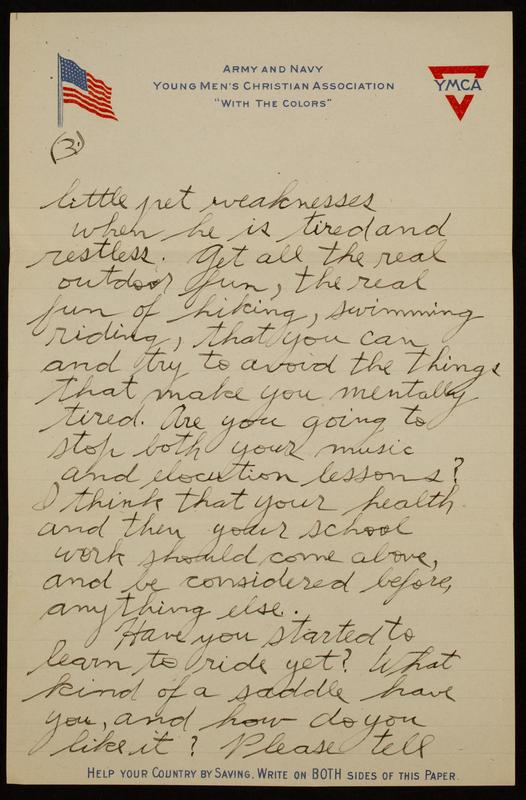 ARMY AND NAVY
YOUNG MEN'S CHRISTIAN ASSOCIATION
"WITH THE COLORS"
YMCA
(3.)
little pet weaknesses
when he is tired and
restless. Get all the real
outdoor fun, the real
fun of hiking, swimming
riding, that you can
and try to avoid the things
that make you mentally
tired. Are you going to
stop both your music
and elocution lessons?
I think that your health
and then your school
work should come above,
and be considered before,
anything else.
Have you started to
learn to ride yet? What
kind of a saddle have
you, and how do you
like it? Please tell
HELP YOUR COUNTRY BY SAVING. WRITE ON BOTH SIDES OF THIS PAPER.